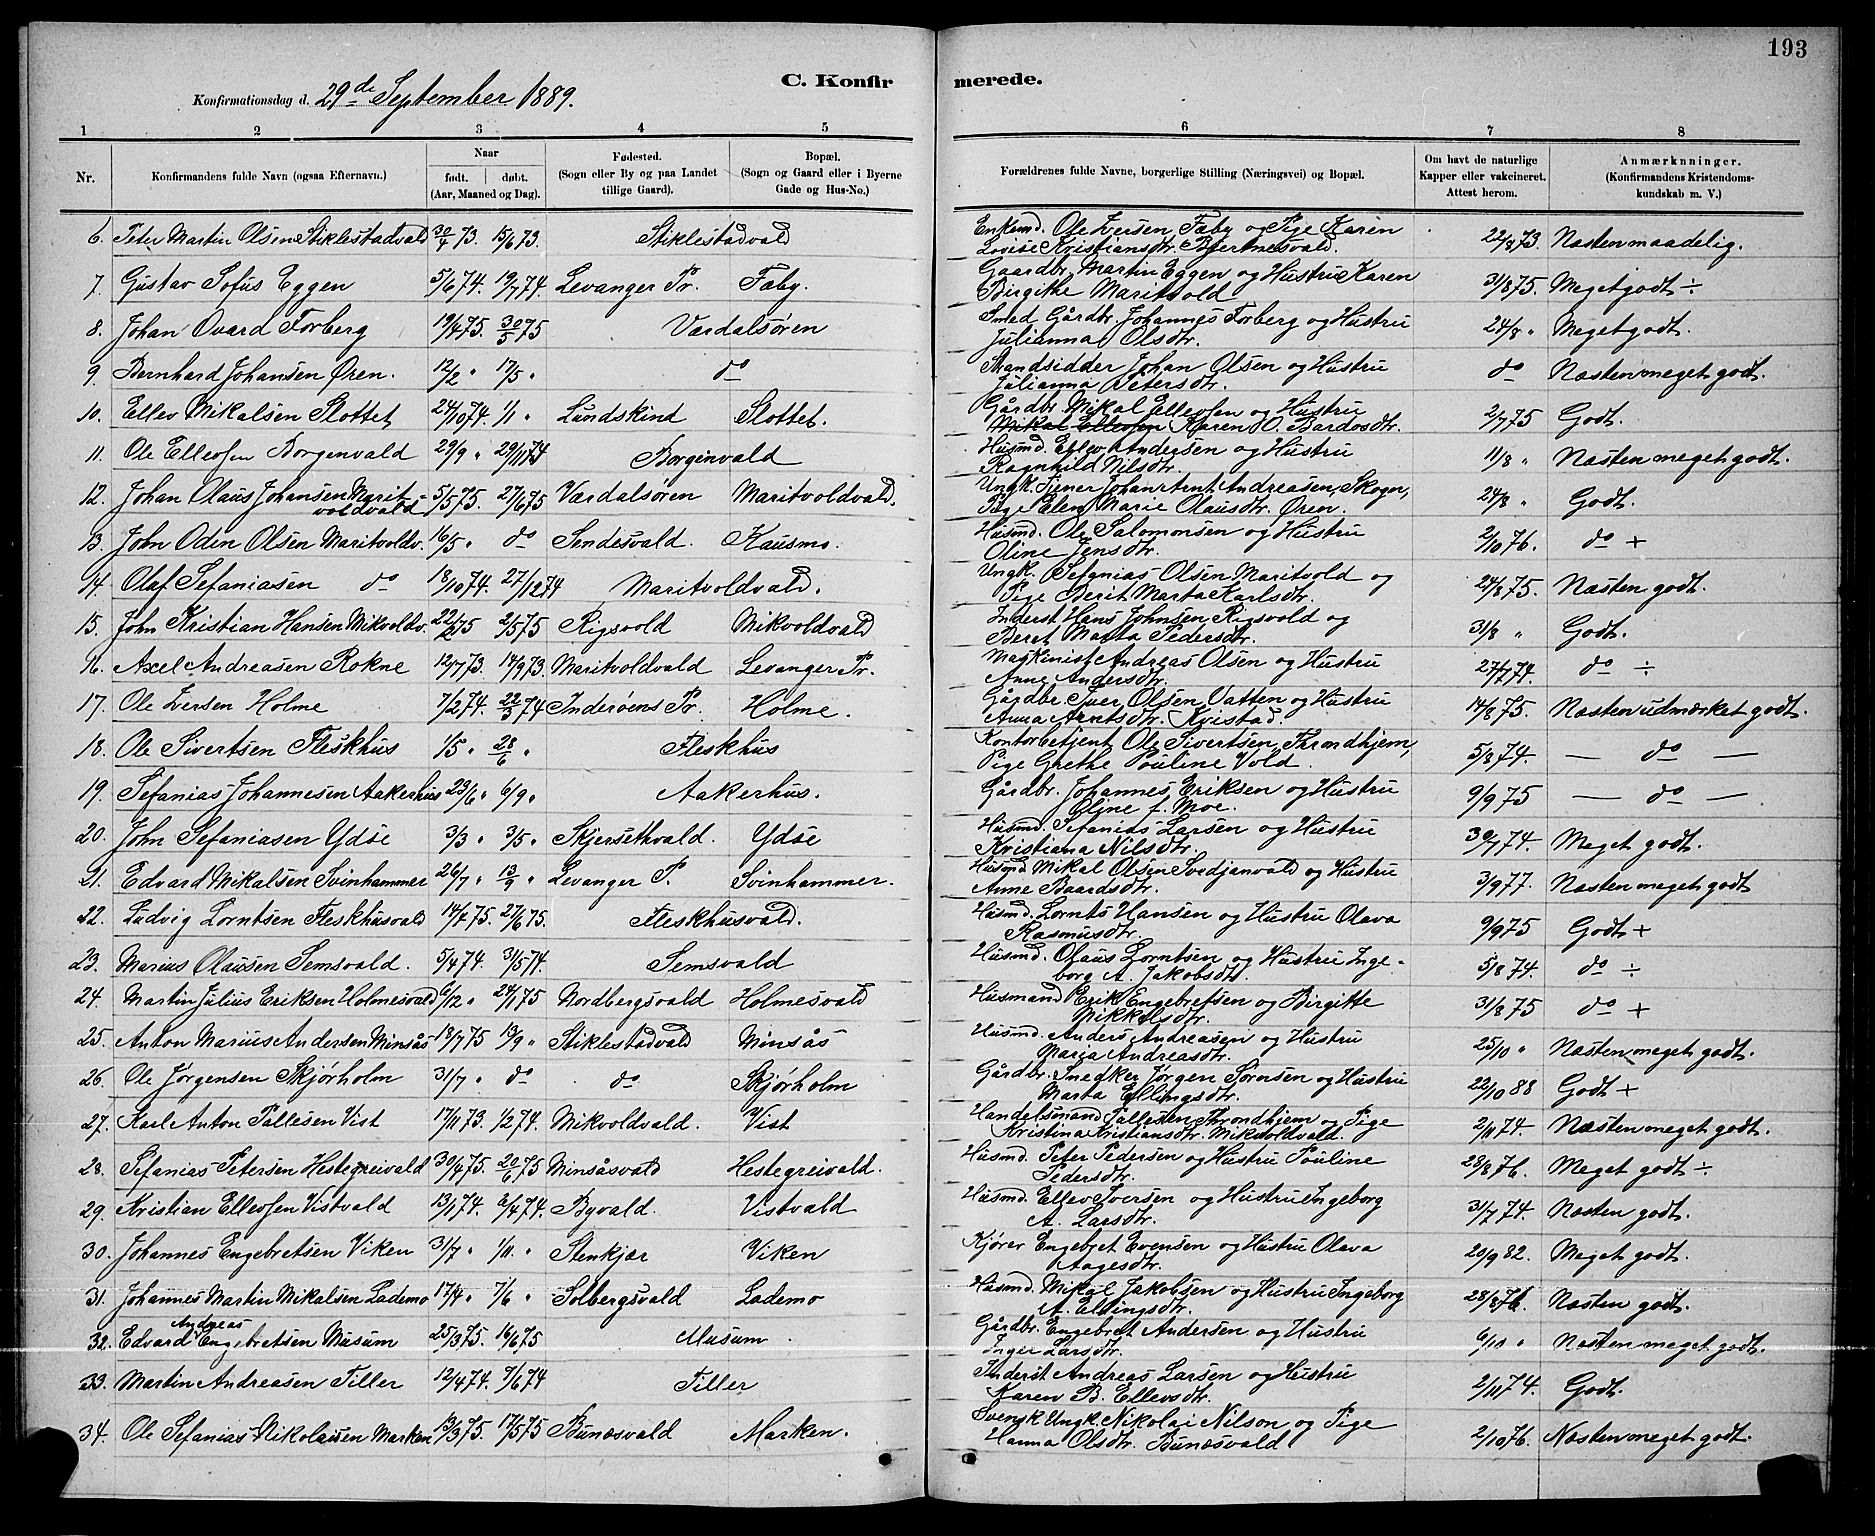 193
C. Konfirmerede.
Konfirmationsdag d. 29de September 1889.
1 2 3 4 5 6 7 8
Nr. Konfirmandens fulde Navn (ogsaa Efternavn). Naar født. døbt. (Aar, Maaned og Dag). Fødested. (Sogn eller By og paa Landet tillige Gaard). Bopæl. (Sogn og Gaard eller i Byerne Gade og Hus-No.) Forældrenes fulde Navne, borgerlige Stilling (Næringsvei) og Bopæl. Om havt de naturlige Kapper eller vakcineret. Attest herom. Anmærkninger. (Konfirmandens Kristendomskundskab m. V.)
6. Peter Martin Olsen Stiklestadvald 30/4 73. 15/6 73. Stiklestadvald Enkemd. Ole Iversen Faby og Pige Karen Lovise Kristiansdtr. Bjertnesvald. 22/8 73. Næsten maadelig.
7. Gustav Sofus Eggen 5/6 74. 19/7 74. Levanger Pr. Faby. Gaardbr. Martin Eggen og Hustru Karen Birgithe Maritvold 31/8 75. Meget godt ÷
8. Johan Ovard Forberg 19/4 75. 30/5 75 Værdalsøren Smed Gårdbr. Johannes Forberg og Hustru Julianna Olsdtr. 24/8 " Meget godt.
9. Bernhard Johansen Øren. 12/2 " 17/5 " do Strandsidder Johan Olsen og Hustru Julianna Petersdtr. do Næsten meget godt.
10. Ellev Mikalsen Slottet 24/10 74. 1/1 " Lundskind Slottet. Gårdbr. Mikal Ellevsen og Hustru Mikal Ellevsen Karen O. Bardosdtr. 2/7 75 Godt.
11. Ole Ellevsen Borgenvald 29/9 " 29/11 74 Borgenvald Husmd. Ellev Andersen og Hustru Ragnhild Nilsdtr. 11/8 " Næsten meget godt.
12. Johan Olaus Johansen Maritvoldvald 5/5 75. 27/6 75 Værdalsøren Maritvoldvald. Ungk. Tjener Johan Arnt Andreasen, Skogn, Pige Elen Marie Olausdtr. Øren. 24/8 " Godt.
13. John Oden Olsen Maritvoldv. 16/5 " do Sendesvald. Kausmo. Husmd. Ole Salomonsen og Hustru Oline Jensdtr. 2/10 76. do +
14. Olaf Sefaniasen do 18/10 74. 27/12 74 Maritvoldvald. Ungk. Sefanias Olsen Maritvold og Pige Berit Marta Karlsdtr. 24/8 75. Næsten godt.
15. John Kristian Hansen Mikvoldv. 22/2 75 2/5 75 Rigsvold Mikvoldvald Inderst Hans Johnsen Rigsvold og Beret Marta Pedersdtr. 31/8 " Godt.
16. Axel Andreasen Rokne 12/7 73. 14/9 73. Maritvoldvald Levanger Pr. Maskinist Andreas Olsen og Hustru Anne Andersdtr. 27/7 74. do ÷
17. Ole Iversen Holme 7/2 74. 22/3 74 Inderøens Pr. Holme. Gårdbr. Iver Olsen Vatten og Hustru Anna Arntsdtr. Kvistad. 14/8 75. Næsten udmærket godt.
18. Ole Sivertsen Fleskhus 1/5 " 28/6 " Fleskhus Kontorbetjent Ole Sivertsen, Throndhjem, Pige Grethe Pouline Vold. 5/8 74. — do —
19. Sefanias Johannesen Aakerhus 23/6 " 6/9 " Aakerhus. Gårdbr. Johannes Eriksen og Hustru Oline f. Moe. 9/9 75 — do —
20. John Sefaniasen Ydse 3/3 " 3/5 " Skjersethvald. Ydse Husmd. Sefanias Larsen og Hustru Kristiana Nilsdtr. 30/7 74. Meget godt.
21. Edvard Mikalsen Svinhammer 26/7 " 13/9 " Levanger P. Svinhammer. Husmd Mikal Olsen Svedjanvald og Hustru Anne Baardsdtr. 3/9 77. Næsten meget godt
22. Ludvig Lorntsen Fleskhusvald 14/4 75. 27/6 75. Fleskhusvald. Husmd. Lornts Hansen og Hustru Olava Rasmusdtr. 9/9 75 Godt +
23. Marius Olausen Semsvald. 5/4 74. 31/5 74. Semsvald Husmd. Olaus Lorntsen og Hustru Ingeborg A. Jakobsdtr. 5/8 74. do ÷
24. Martin Julius Eriksen Holmesvald 6/12 " 24/1 75 Nordbergsvald Holmesvald Husmand Erik Engebretsen og Birgitte Mikkelsdtr. 31/8 75 do +
25. Anton Marius Andersen Minsås 18/7 75 13/9 " Stiklestadvald Minsås Husmd. Anders Andreasen og Hustru Maria Andreasdtr. 25/10 " Næsten meget godt.
26. Ole Jørgensen Skjørholm 31/7 " do do Skjørholm Gårdbr. Snedker Jørgen Sørnsen og Hustru Marta Ellingsdtr. 22/10 88 Godt +
27. Karl Anton Pallesen Vist 17/11 73. 1/2 74. Mikvoldvald. Vist Handelsmand Pallesen Throndhjem og Pige Kristina Kristiansdtr. Mikvoldvald. 2/11 74. Næsten meget godt.
28. Sefanias Petersen Hestegreivald 30/4 75. 20/6 75 Minsåsvald Hestegreivald. Husmd. Peter Pedersen og Hustru Pouline Pedersdtr. 28/8 76. Meget godt ÷
29. Kristian Ellevsen Vistvald 13/1 74. 6/4 74. Byvald. Vistvald Husmd. Ellev Iversen og Hustru Ingeborg A. Larsdtr. 31/7 74. Næsten godt.
30. Johannes Engebretsen Viken 31/7 " 1/11 " Stenkjær Viken Kjører Engebret Evensen og Hustru Olava Aagesdtr. 20/9 82. Meget godt.
31. Johannes Martin Mikalsen Lademo 17/4 " 7/6 " Solbergsvald Lademo Husmd. Mikal Jakobsen og Hustru Ingeborg A. Ellingsdtr. 28/8 76. Næsten godt.
32. Edvard Andreas Engebretsen Musum 25/3 75. 16/6 75 Musum Gårdbr. Engebret Andersen og Hustru Inger Larsdtr. 6/10 " Næsten meget godt.
33. Martin Andreasen Tiller 12/4 74. 7/6 74 Tiller Inderst Andreas Larsen og Hustru Karen B. Ellevsdtr. 2/11 74. Godt.
34. Ole Sefanias Nikolaisen Marken 13/3 75. 17/5 75 Bunæsvald Marken. Svensk Ungk. Nikolai Nilson og Pige Hanna Olsdtr. Bunæsvald 2/10 76. Næsten meget godt.